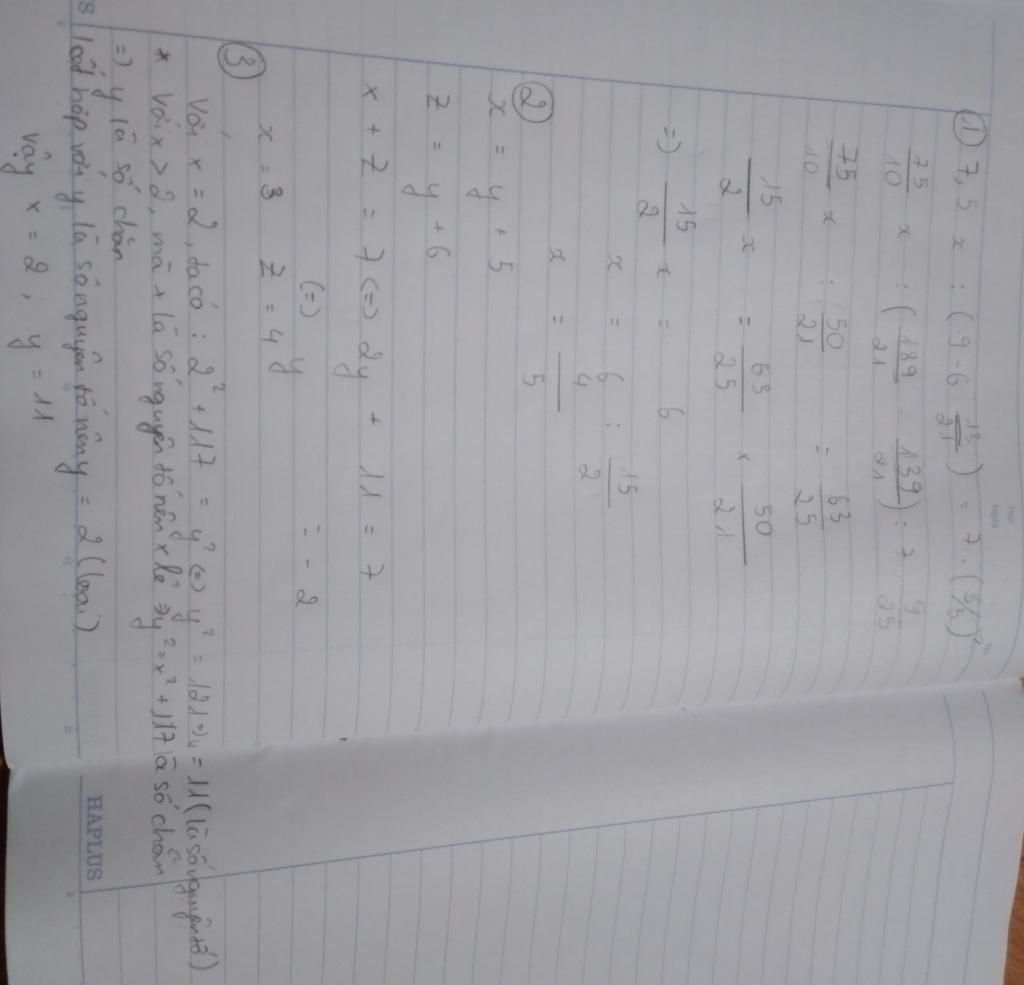 ① 7,5 x : (9 - 6 13/21) = 7 . (3/5)²
75/10 x : (189/21 - 139/21) = 7 . 9/25
75/10 x : 50/21 = 63/25
15/2 x = 63/25 x 50/21
=) 15/2 x = 6
x = 6 : 15/2
x = 4/5
② x = y + 5
z = y + 6
x + z = 7 (=) 2y + 11 = 7
(=) y = - 2
x = 3 z = 4
③
Với x = 2, ta có : 2² + 117 = y² (=) y² = 121 => y = 11 (là số nguyên tố)
* Với x > 2, mà x là số nguyên tố nên x lẻ => y² = x² + 117 là số chẵn
=) y là số chẵn
kết hợp với y là số nguyên tố nên y = 2 (loại)
vậy x = 2 ; y = 11
HAPLUS